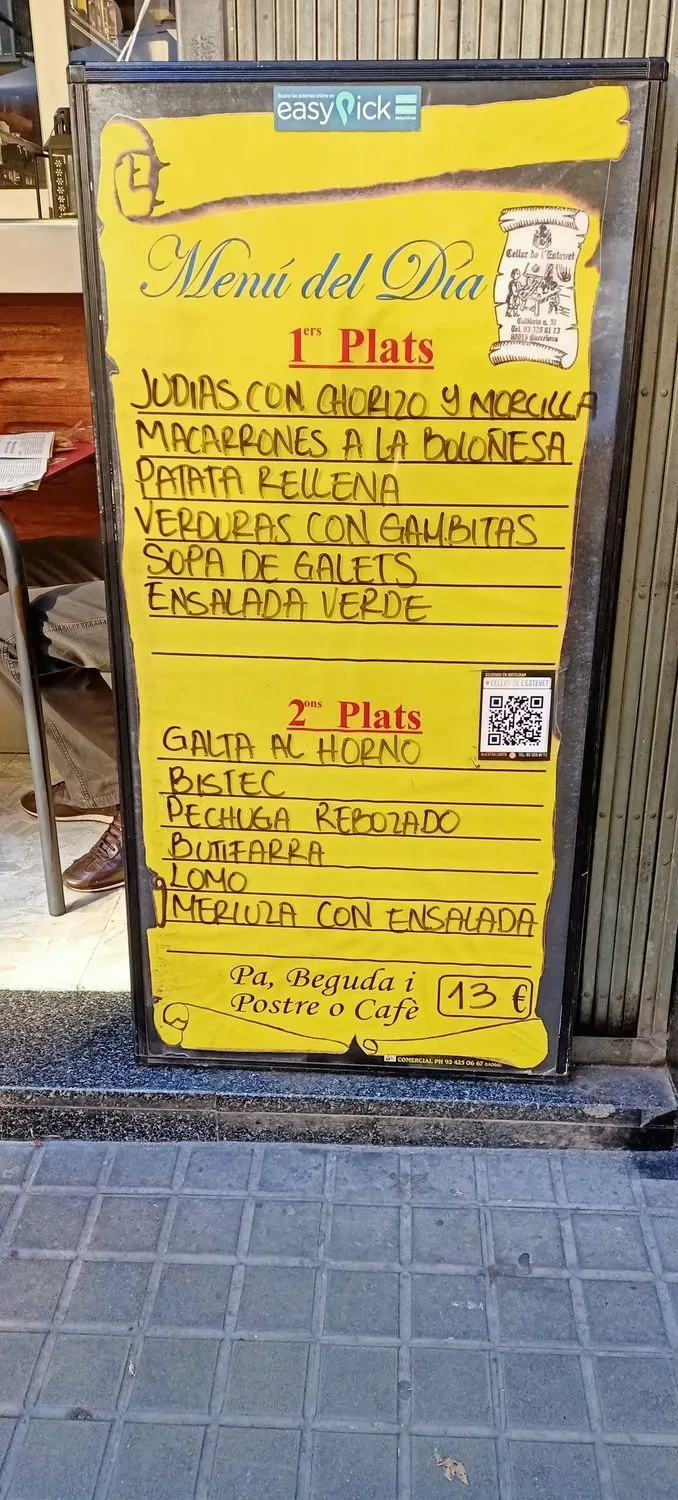 easypick
Menú del Día
Celler de l'Estevet
1ers Plats
JUDIAS CON CHORIZO Y MORCILLA
MACARRONES A LA BOLOÑESA
PATATA RELLENA
VERDURAS CON GAMBITAS
SOPA DE GALETS
ENSALADA VERDE
CELLER DE L'ESTEVET
2ons Plats
GALTA AL HORNO
BISTEC
PECHUGA REBOZADO
BUTIFARRA
LOMO
MERLUZA CON ENSALADA
Pa, Beguda i
Postre o Cafè
13 €
COMERCIAL PH 93 425 06 67